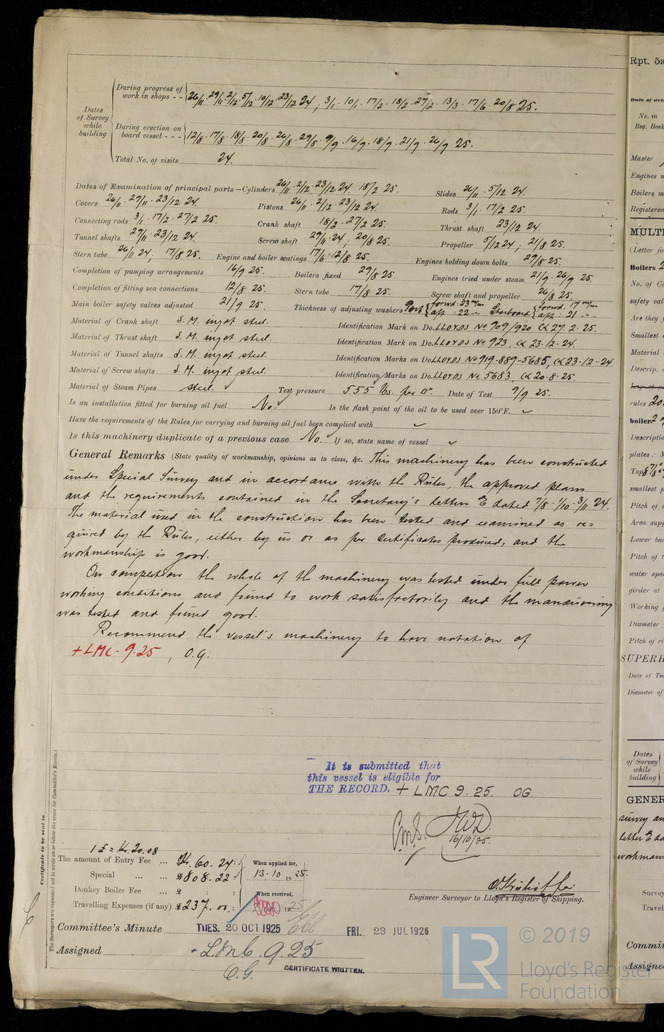 Dates of Survey while building
During progress of work in shops - - 26/11 29/11 2/12 5/12 10/12 23/12 24, 3/1 10/1 17/2 18/2 27/2 13/3 17/6 20/8 25.
During erection on board vessel - - - 12/8 17/8 18/8 20/8 26/8 29/8 9/9 16/9 18/9 21/9 26/9 25.
Total No. of visits 24.
Dates of Examination of principal parts—Cylinders 26/11 2/12 23/12 24 18/2 25. Slides 26/11 5/12 24.
Covers 26/11 27/11 23/12 24 Pistons 26/11 2/12 23/12 24 Rods 3/1 17/2 25.
Connecting rods 3/1 17/2 27/2 25. Crank shaft 18/2 27/2 25. Thrust shaft 23/12 24.
Tunnel shafts 27/11 23/12 24. Screw shaft 29/11 24, 20/8 25. Propeller 5/12 24, 21/8 25.
Stern tube 26/11 24, 17/8 25. Engine and boiler seatings 17/6 12/8 25. Engines holding down bolts 29/8 25.
Completion of pumping arrangements 16/9 25. Boilers fixed 29/8 25. Engines tried under steam 21/9 26/9 25.
Completion of fitting sea connections 12/8 25. Stern tube 17/8 25. Screw shaft and propeller 26/8 25.
Main boiler safety valves adjusted 21/9 25. Thickness of adjusting washers Port forwd. 23 m/m aft. 22 Starboard forwd. 17 m/m aft. 21
Material of Crank shaft S. M. ingot steel. Identification Mark on Do. LLOYDS No 709/920 27.2.25.
Material of Thrust shaft S. M. ingot steel. Identification Mark on Do. LLOYDS No 923, 23.12.24
Material of Tunnel shafts S. M. ingot steel. Identification Marks on Do. LLOYDS No 919-889-5635, 23-12-24
Material of Screw shafts S. M. ingot steel. Identification Marks on Do. LLOYDS No 5683, 20.8.25.
Material of Steam Pipes steel Test pressure 555 lbs. per □". Date of Test 9/9 25.
Is an installation fitted for burning oil fuel No. Is the flash point of the oil to be used over 150°F.
Have the requirements of the Rules for carrying and burning oil fuel been complied with
Is this machinery duplicate of a previous case No. If so, state name of vessel
General Remarks (State quality of workmanship, opinions as to class, &c. This machinery has been constructed
under Special Survey and in accordance with the Rules, the approved plans
and the requirements contained in the Secretary's letters E dated 7/8 1/10 3/11 24.
The material used in the construction has been tested and examined as re-
quired by the Rules, either by us or as per Certificates produced, and the
workmanship is good.
On completion the whole of the machinery was tested under full power
working conditions and found to work satisfactorily and the manœuvring
was tested and found good.
Recommend the vessel's machinery to have notation of
+LMC-9.25, O.G.
It is submitted that
this vessel is eligible for
THE RECORD. + LMC 9.25. OG.
16/10/25.
1£ = Kr. 20.08
The amount of Entry Fee ... Kr. 60.24 When applied for,
Special ... 808.22 13-10-1925.
Donkey Boiler Fee ... £ : : When received,
Travelling Expenses (if any) £ 237.
Engineer Surveyor to Lloyd's Register of Shipping.
Committee's Minute TUES. 20 OCT 1925 FRI. 23 JUL 1926
Assigned + LMC 9.25
O.G. CERTIFICATE WRITTEN.
Certificate to be sent to
Rpt. 5a
No. in
Reg. Book
Master
Engines
Boilers
Registered
MULTI
(Letter fo
Boilers
No. of C
safety val
Are they
Smallest
Material
Descrip.
rules 20.
boiler
Descriptio
plates: M
smallest
Pitch of
Area supp
Lower bac
Pitch of t
water spac
girder at
Working
Diameter
Pitch of
SUPERH
Date of Te
Diameter of
Dates
of Survey
while
building
GENER
survey an
workman
Survey
Travel
Commit
Assigne
LR © 2019
Lloyd's Register
Foundation